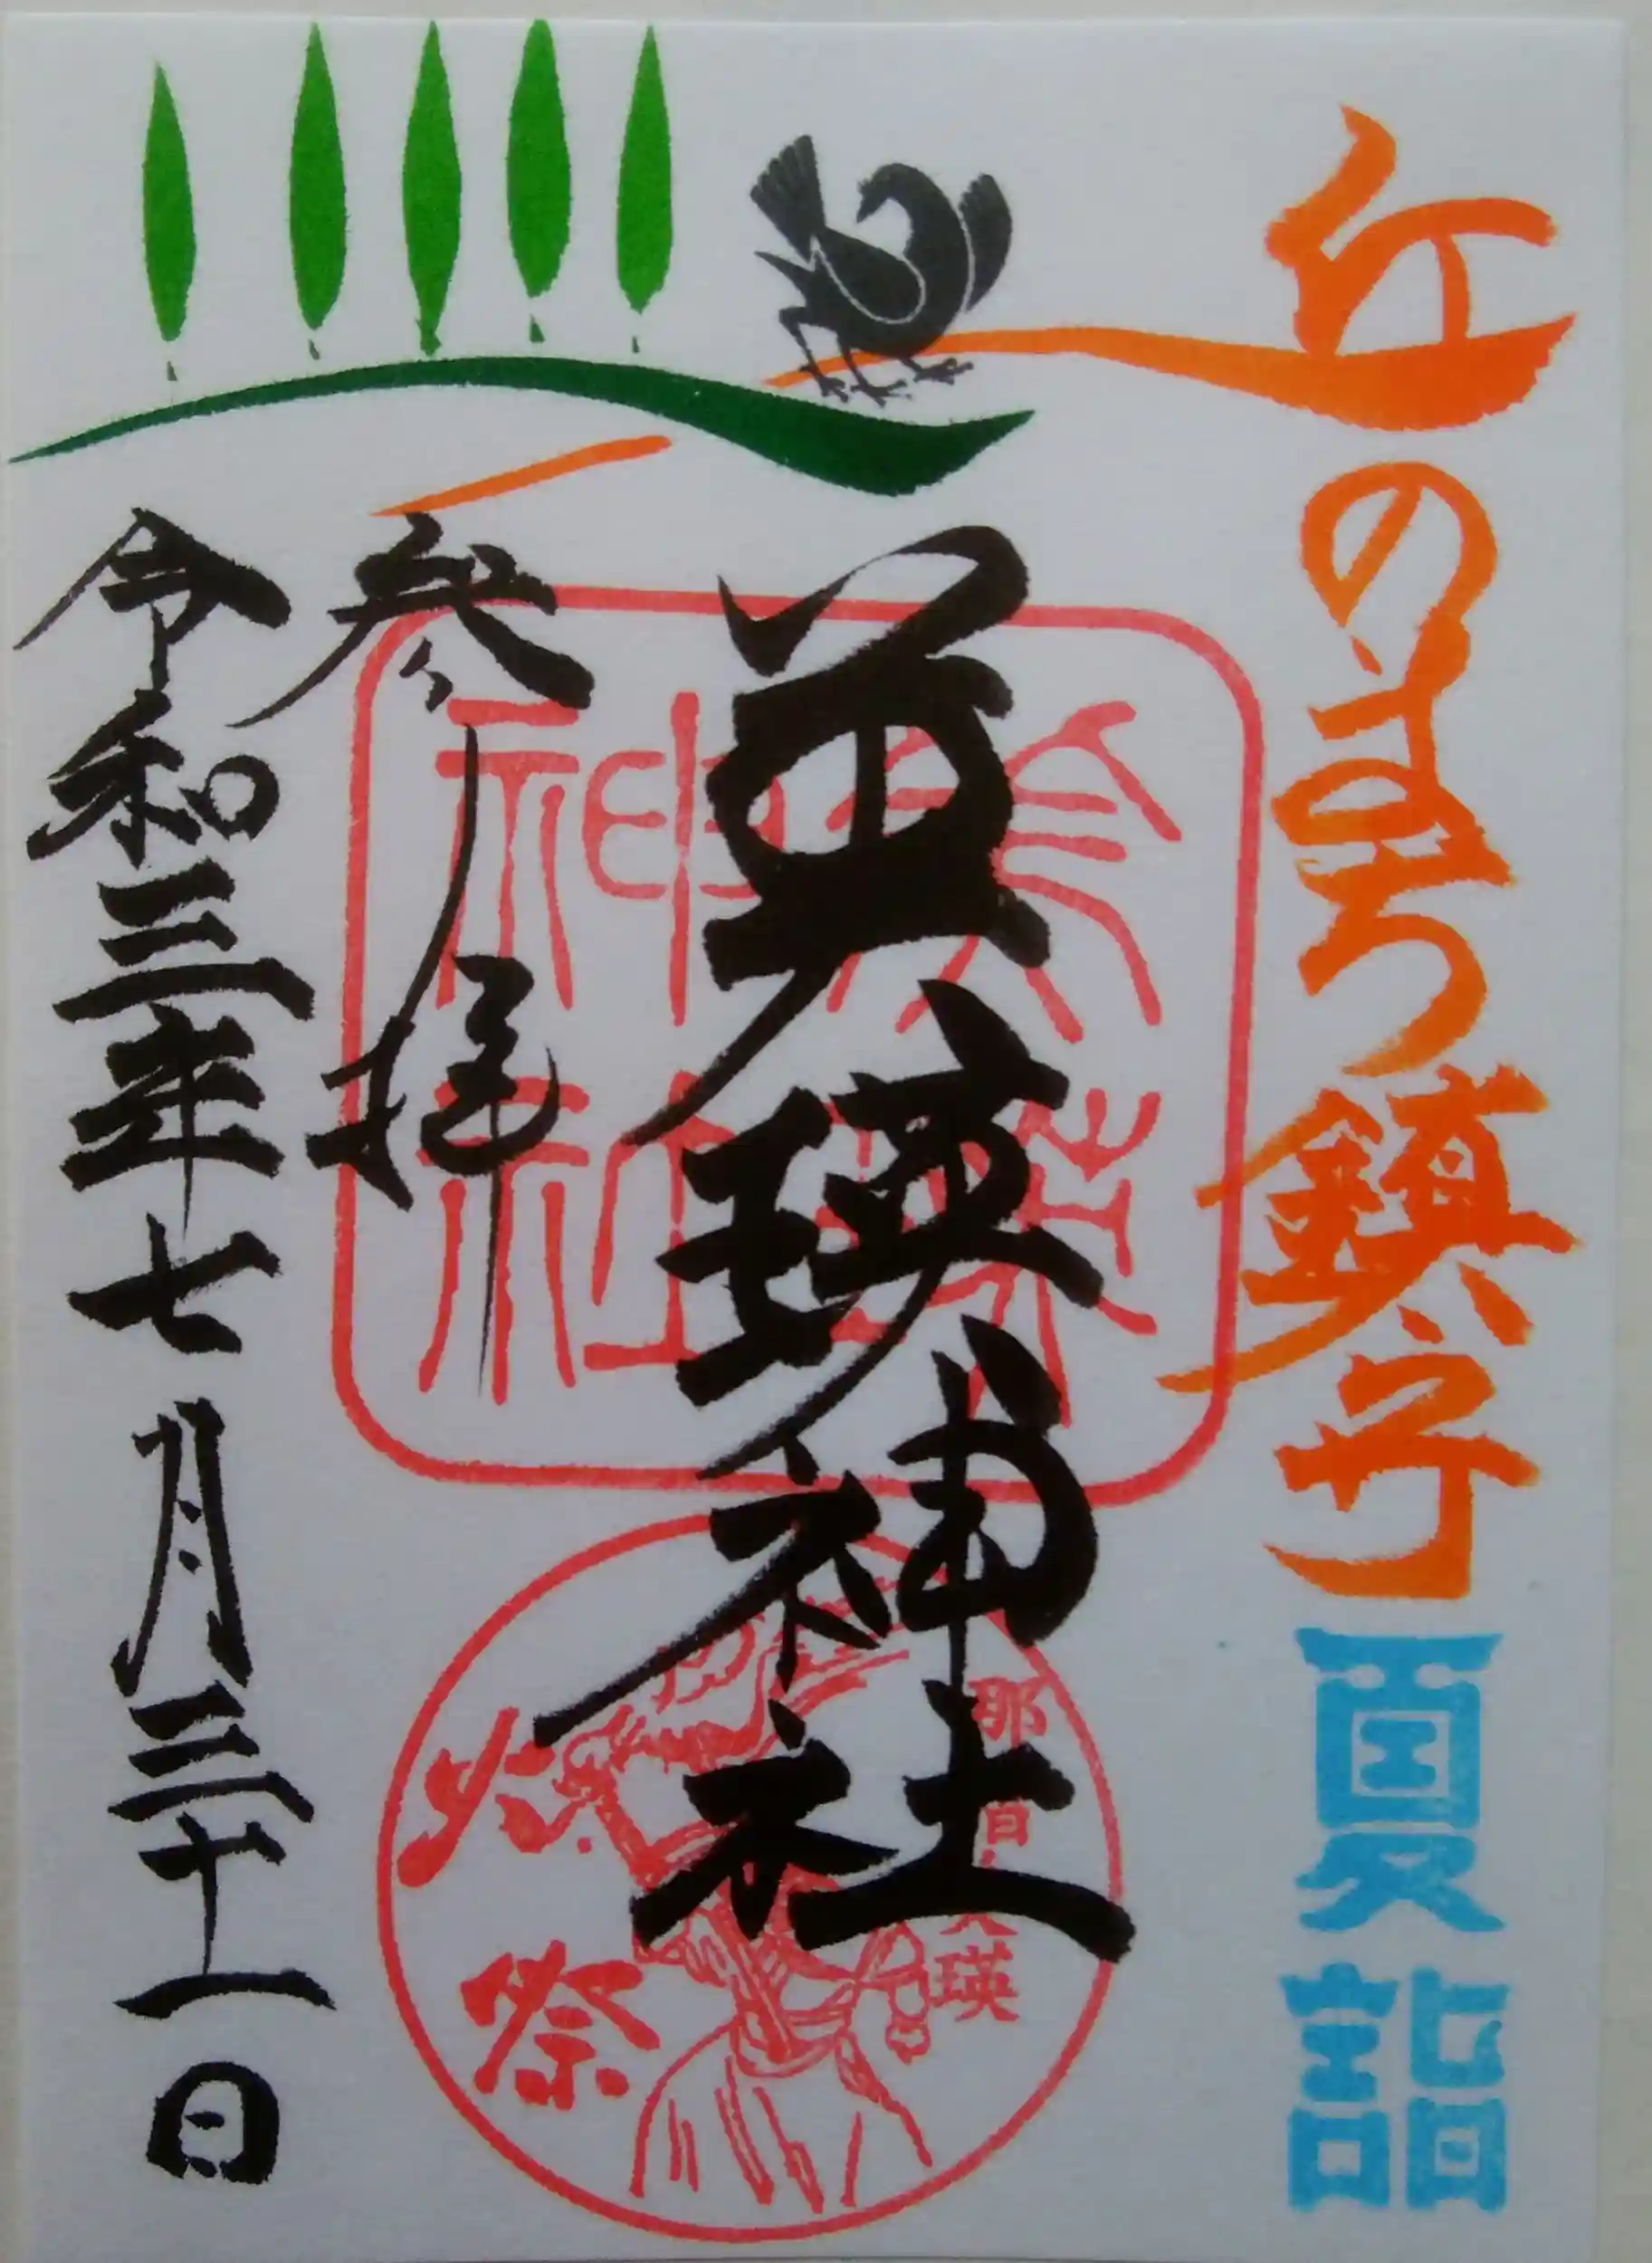 丘のまち鎮守
夏詣
美瑛神社
美瑛
神社
那智・美瑛
火祭
参拝
令和三年七月三十一日